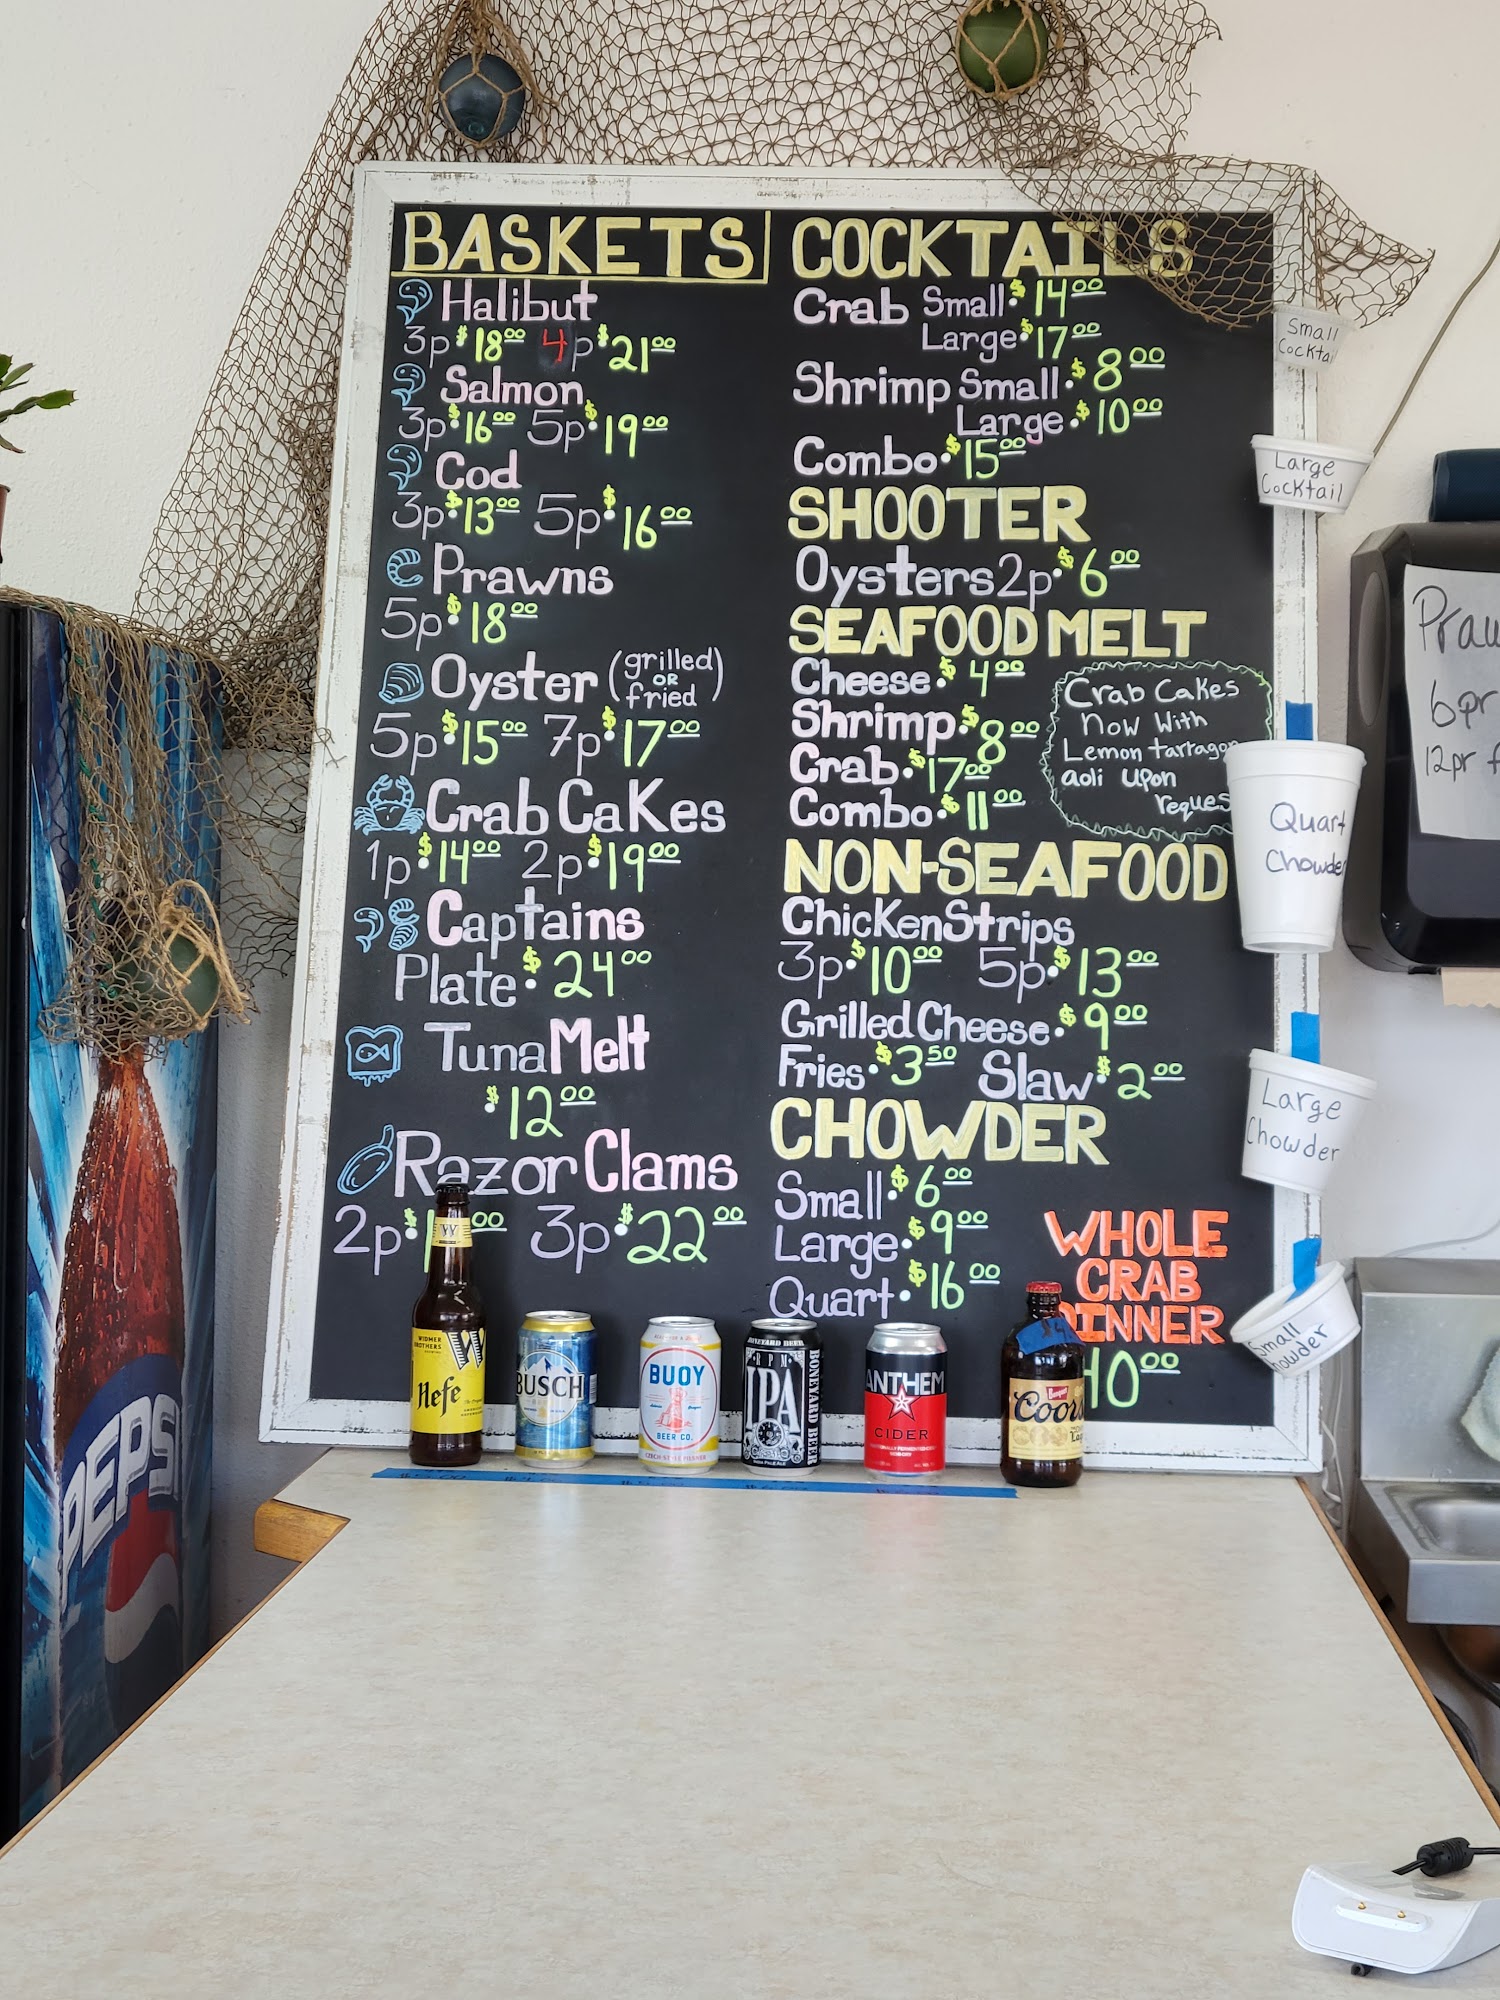 BASKETS
Halibut
3p $18.00 4p $21.00
Salmon
3p $16.00 5p $19.00
Cod
3p $13.00 5p $16.00
Prawns
5p $18.00
Oyster (grilled OR fried)
5p $15.00 7p $17.00
Crab Cakes
1p $14.00 2p $19.00
Captains
Plate $24.00
Tuna Melt
$12.00
Razor Clams
2p 3p $22.00
COCKTAILS
Crab Small $14.00
Large $17.00
Shrimp Small $8.00
Large $10.00
Combo $15.00
SHOOTER
Oysters 2p $6.00
SEAFOOD MELT
Cheese $4.00
Shrimp $8.00
Crab $17.00
Combo $11.00
Crab Cakes
Now With
Lemon tarragon
aoli upon
reques
NON-SEAFOOD
Chicken Strips
3p $10.00 5p $13.00
Grilled Cheese $9.00
Fries $3.50 Slaw $2.00
CHOWDER
Small $6.00
Large $9.00
Quart $16.00
WHOLE
CRAB
DINNER
40.00
Small
Cocktai
Large
Cocktail
Quart
Chowder
Large
Chowder
Small
howder
Praw
6pr
12pr
PEPSI
WIDMER
BROTHERS
W
Hefe
BUSCH
BUOY
BEER CO.
CZECH STYLE PILSNER
BONEYARD BEER
RPM
IPA
BONEYARD BEER
INDIA PALE ALE
ANTHEM
CIDER
Banquet
Coors